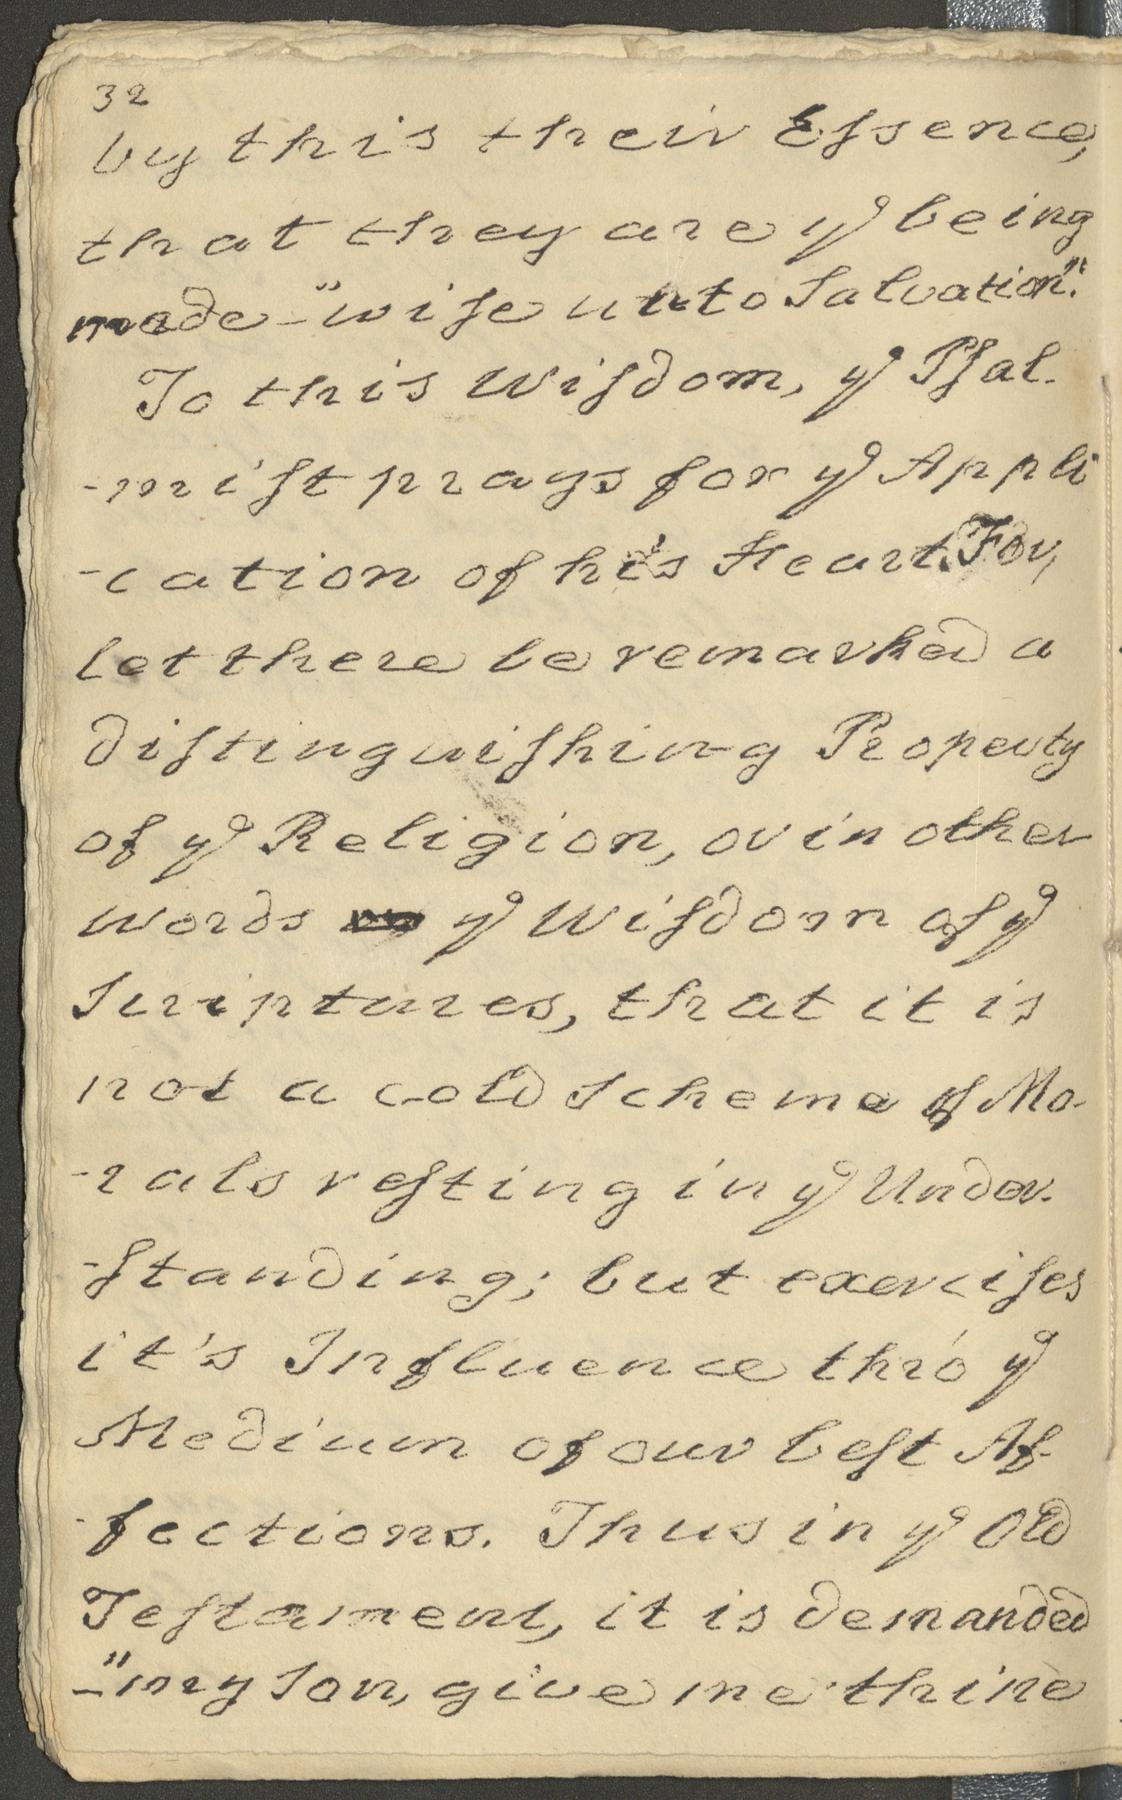 32
by this their Eſsence,
that they are yᵉ being
made -"wiſe unto Salvation".
To this Wiſdom, yᵉ Pſal-
-miſt prays for yᵉ Appli
-cation of his Heart. For,
let there be remarked a
diſtinguiſhing Property
of yᵉ Religion, or in other
words yᵉ Wiſdom of yᵉ
Scriptures, that it is
not a cold Scheme of Mo-
-rals reſting in yᵉ Under-
-ſtanding; but exerciſes
it's Influence thro' yᵉ
Medium of our beſt Af-
-fections. Thus in yᵉ Old
Teſtament, it is demanded
-"my Son, give me thine